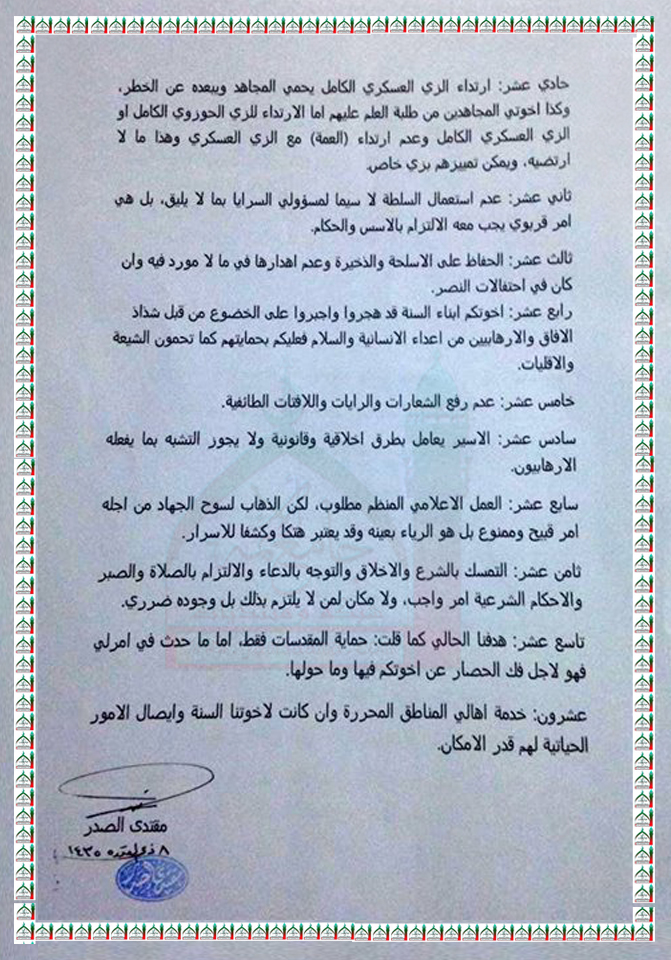 حادي عشر: ارتداء الزي العسكري الكامل يحمي المجاهد ويبعده عن الخطر،
وكذا اخوتي المجاهدين من طلبة العلم عليهم اما الارتداء للزي الحوزوي الكامل او
الزي العسكري الكامل وعدم ارتداء (العمة) مع الزي العسكري وهذا ما لا
ارتضيه، ويمكن تمييزهم بزي خاص.
ثاني عشر: عدم استعمال السلطة لا سيما لمسؤولي السرايا بما لا يليق، بل هي
امر قربوي يجب معه الالتزام بالاسس والحكام.
ثالث عشر: الحفاظ على الاسلحة والذخيرة وعدم اهدارها في ما لا مورد فيه وان
كان في احتفالات النصر.
رابع عشر: اخوتكم ابناء السنة قد هجروا واجبروا على الخضوع من قبل شذاذ
الافاق والارهابيين من اعداء الانسانية والسلام فعليكم بحمايتهم كما تحمون الشيعة
والاقليات.
خامس عشر: عدم رفع الشعارات والرايات واللافتات الطائفية.
سادس عشر: الاسير يعامل بطرق اخلاقية وقانونية ولا يجوز التشبه بما يفعله
الارهابيون.
سابع عشر: العمل الاعلامي المنظم مطلوب، لكن الذهاب لسوح الجهاد من اجله
امر قبيح وممنوع بل هو الرياء بعينه وقد يعتبر هتكا وكشفا للاسرار.
ثامن عشر: التمسك بالشرع والاخلاق والتوجه بالدعاء والالتزام بالصلاة والصبر
والاحكام الشرعية امر واجب، ولا مكان لمن لا يلتزم بذلك بل وجوده ضرري.
تاسع عشر: هدفنا الحالي كما قلت: حماية المقدسات فقط، اما ما حدث في امرلي
فهو لاجل فك الحصار عن اخوتكم فيها وما حولها.
عشرون: خدمة اهالي المناطق المحررة وان كانت لاخوتنا السنة وايصال الامور
الحياتية لهم قدر الامكان.
مقتدى الصدر
٨ ذي القعدة ١٤٣٥